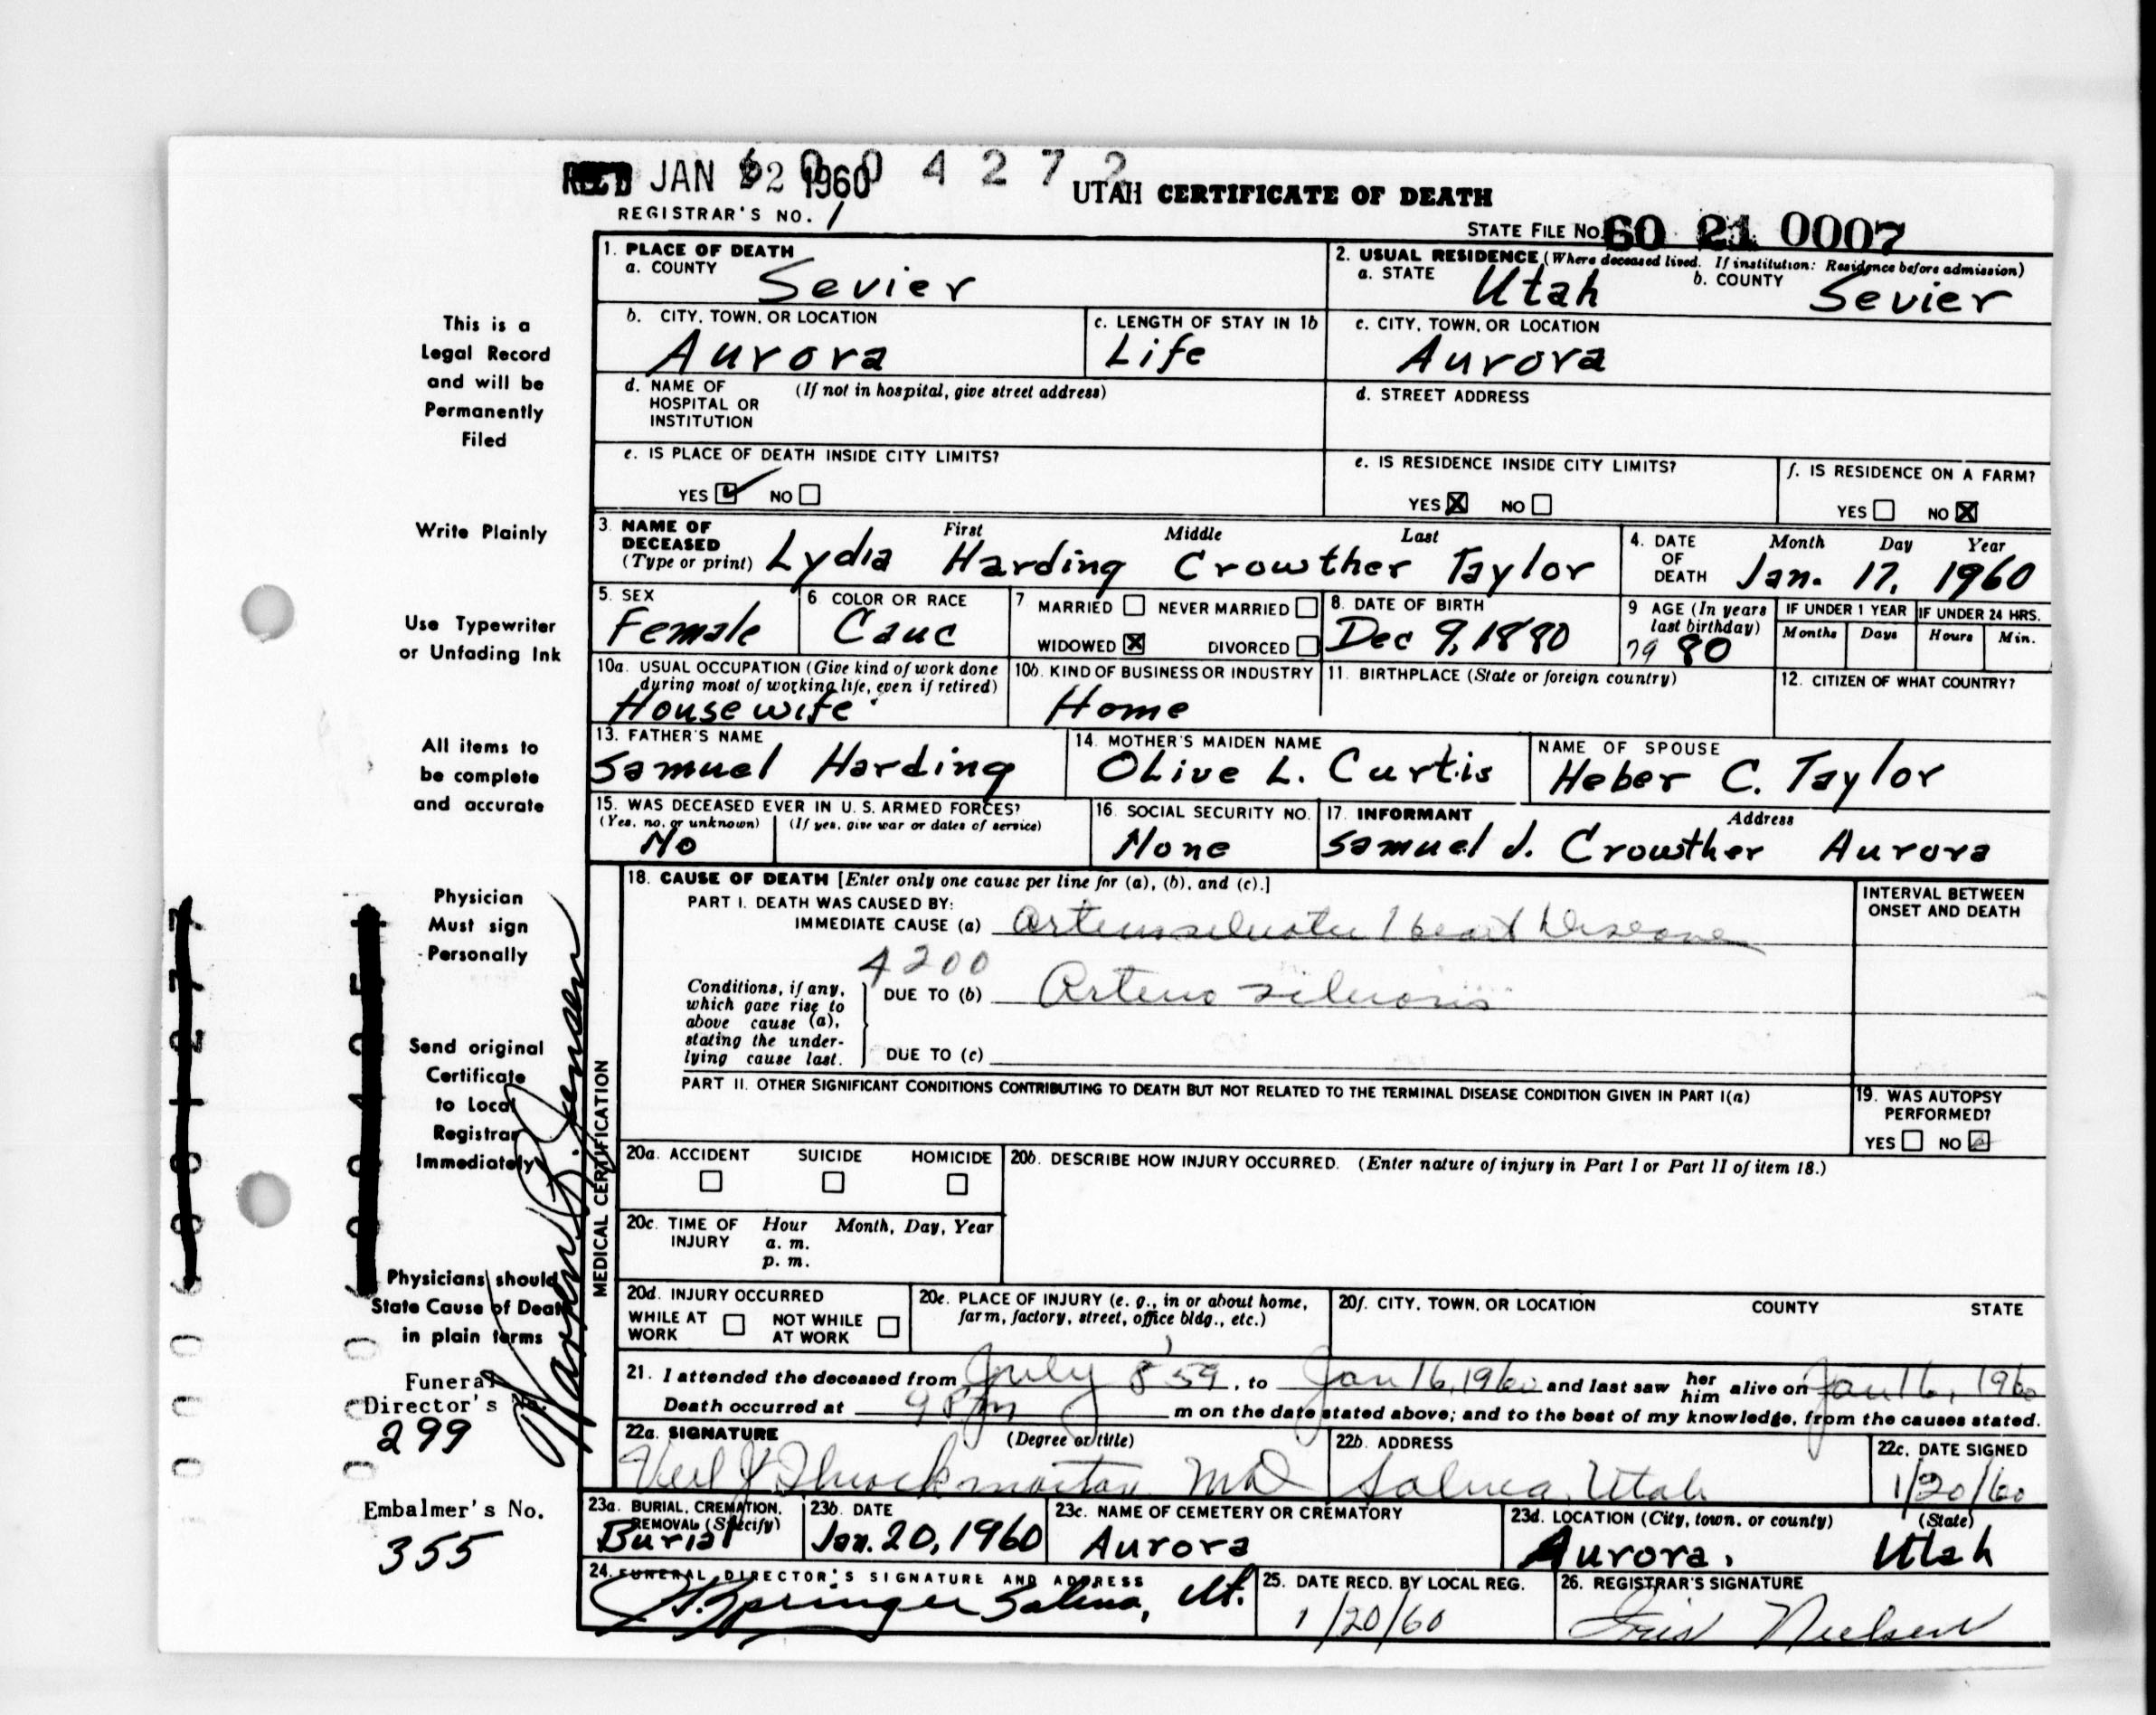 REC'D JAN 22 1960 6 0 0 4 2 7 2
UTAH CERTIFICATE OF DEATH
REGISTRAR'S NO. 1
STATE FILE NO. 60 21 0007
1. PLACE OF DEATH
a. COUNTY Sevier
2. USUAL RESIDENCE (Where deceased lived. If institution: Residence before admission)
a. STATE Utah b. COUNTY Sevier
b. CITY, TOWN, OR LOCATION Aurora
c. LENGTH OF STAY IN 1b Life
c. CITY, TOWN, OR LOCATION Aurora
d. NAME OF HOSPITAL OR INSTITUTION (If not in hospital, give street address)
d. STREET ADDRESS
e. IS PLACE OF DEATH INSIDE CITY LIMITS?
YES NO
e. IS RESIDENCE INSIDE CITY LIMITS?
YES NO
f. IS RESIDENCE ON A FARM?
YES NO
3. NAME OF DECEASED (Type or print) First Middle Last
Lydia Harding Crowther Taylor
4. DATE OF DEATH Month Day Year
Jan. 17, 1960
5. SEX Female
6. COLOR OR RACE Cauc
7. MARRIED NEVER MARRIED
WIDOWED DIVORCED
8. DATE OF BIRTH Dec 9, 1880
9 AGE (In years last birthday) 79 80
IF UNDER 1 YEAR Months Days
IF UNDER 24 HRS. Hours Min.
10a. USUAL OCCUPATION (Give kind of work done during most of working life, even if retired)
Housewife
10b. KIND OF BUSINESS OR INDUSTRY
Home
11. BIRTHPLACE (State or foreign country)
12. CITIZEN OF WHAT COUNTRY?
13. FATHER'S NAME
Samuel Harding
14. MOTHER'S MAIDEN NAME
OLive L. Curtis
NAME OF SPOUSE
Heber C. Taylor
15. WAS DECEASED EVER IN U. S. ARMED FORCES?
(Yes, no, or unknown) (If yes, give war or dates of service)
No
16. SOCIAL SECURITY NO.
None
17. INFORMANT Address
Samuel J. Crowther Aurora
MEDICAL CERTIFICATION
18. CAUSE OF DEATH [Enter only one cause per line for (a), (b), and (c).]
PART I. DEATH WAS CAUSED BY:
IMMEDIATE CAUSE (a) Heart Disease
4200
Conditions, if any, which gave rise to above cause (a), stating the underlying cause last.
DUE TO (b)
DUE TO (c)
INTERVAL BETWEEN ONSET AND DEATH
PART II. OTHER SIGNIFICANT CONDITIONS CONTRIBUTING TO DEATH BUT NOT RELATED TO THE TERMINAL DISEASE CONDITION GIVEN IN PART I(a)
19. WAS AUTOPSY PERFORMED?
YES NO
20a. ACCIDENT SUICIDE HOMICIDE
20b. DESCRIBE HOW INJURY OCCURRED. (Enter nature of injury in Part I or Part II of item 18.)
20c. TIME OF INJURY Hour Month, Day, Year
a. m.
p. m.
20d. INJURY OCCURRED
WHILE AT WORK NOT WHILE AT WORK
20e. PLACE OF INJURY (e. g., in or about home, farm, factory, street, office bldg., etc.)
20f. CITY, TOWN, OR LOCATION COUNTY STATE
21. I attended the deceased from July 8 '59, to Jan 16, 1960 and last saw her him alive on Jan 16, 1960
Death occurred at 9 Pm m on the date stated above; and to the best of my knowledge, from the causes stated.
22a. SIGNATURE (Degree or title)
Throckmorton MD
22b. ADDRESS
Salina, Utah
22c. DATE SIGNED
1/20/60
23a. BURIAL, CREMATION, REMOVAL (Specify)
Burial
23b. DATE
Jan. 20, 1960
23c. NAME OF CEMETERY OR CREMATORY
Aurora
23d. LOCATION (City, town, or county) (State)
Aurora, Utah
24. FUNERAL DIRECTOR'S SIGNATURE AND ADDRESS
Springer Salina, Ut.
25. DATE RECD. BY LOCAL REG.
1/20/60
26. REGISTRAR'S SIGNATURE
Iris Nielsen
This is a
Legal Record
and will be
Permanently
Filed
Write Plainly
Use Typewriter
or Unfading Ink
All items to
be complete
and accurate
Physician
Must sign
Personally
Send original
Certificate
to Local
Registrar
Immediately
Physicians should
State Cause of Death
in plain terms
Funeral
Director's No.
299
Embalmer's No.
355